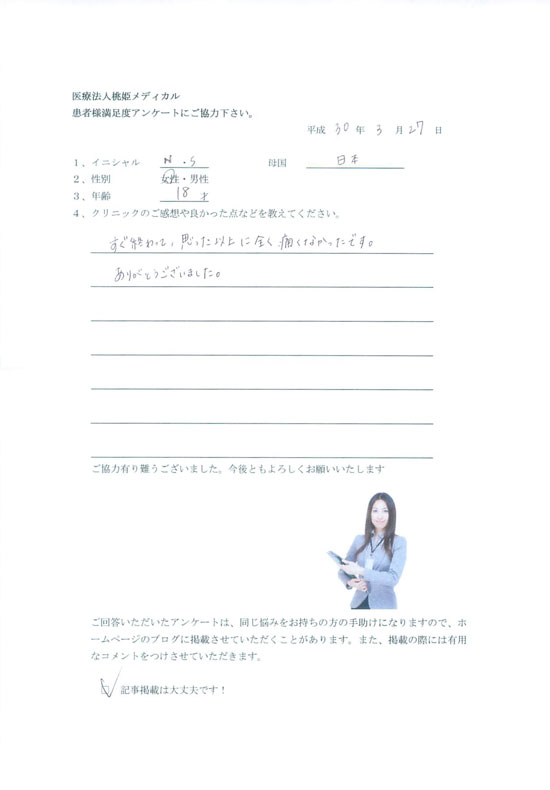 医療法人桃姫メディカル
患者様満足度アンケートにご協力下さい。
平成 30 年 3 月 27 日
1、イニシャル N.S 母国 日本
2、性別 女性・男性
3、年齢 18 才
4、クリニックのご感想や良かった点などを教えてください。
すぐ終わって、思った以上に全く痛くなかったです。
ありがとうございました。
ご協力有り難うございました。今後ともよろしくお願いいたします
ご回答いただいたアンケートは、同じ悩みをお持ちの方の手助けになりますので、ホ
ームページのブログに掲載させていただくことがあります。また、掲載の際には有用
なコメントをつけさせていただきます。
☑ 記事掲載は大丈夫です！